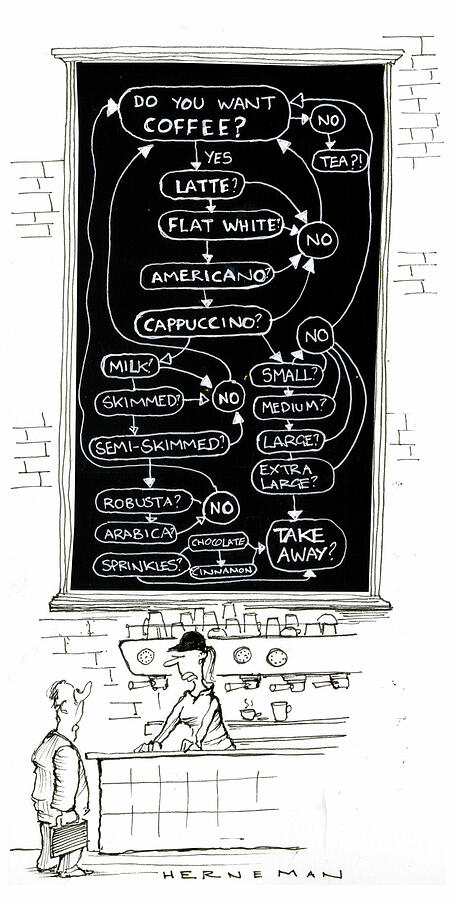 DO YOU WANT
COFFEE?
NO
TEA?!
YES
LATTE?
FLAT WHITE?
NO
AMERICANO?
CAPPUCCINO?
MILK?
SKIMMED?
NO
SEMI-SKIMMED?
NO
SMALL?
MEDIUM?
LARGE?
EXTRA
LARGE?
ROBUSTA?
NO
ARABICA?
CHOCOLATE
SPRINKLES?
CINNAMON
TAKE
AWAY?
HERNEMAN